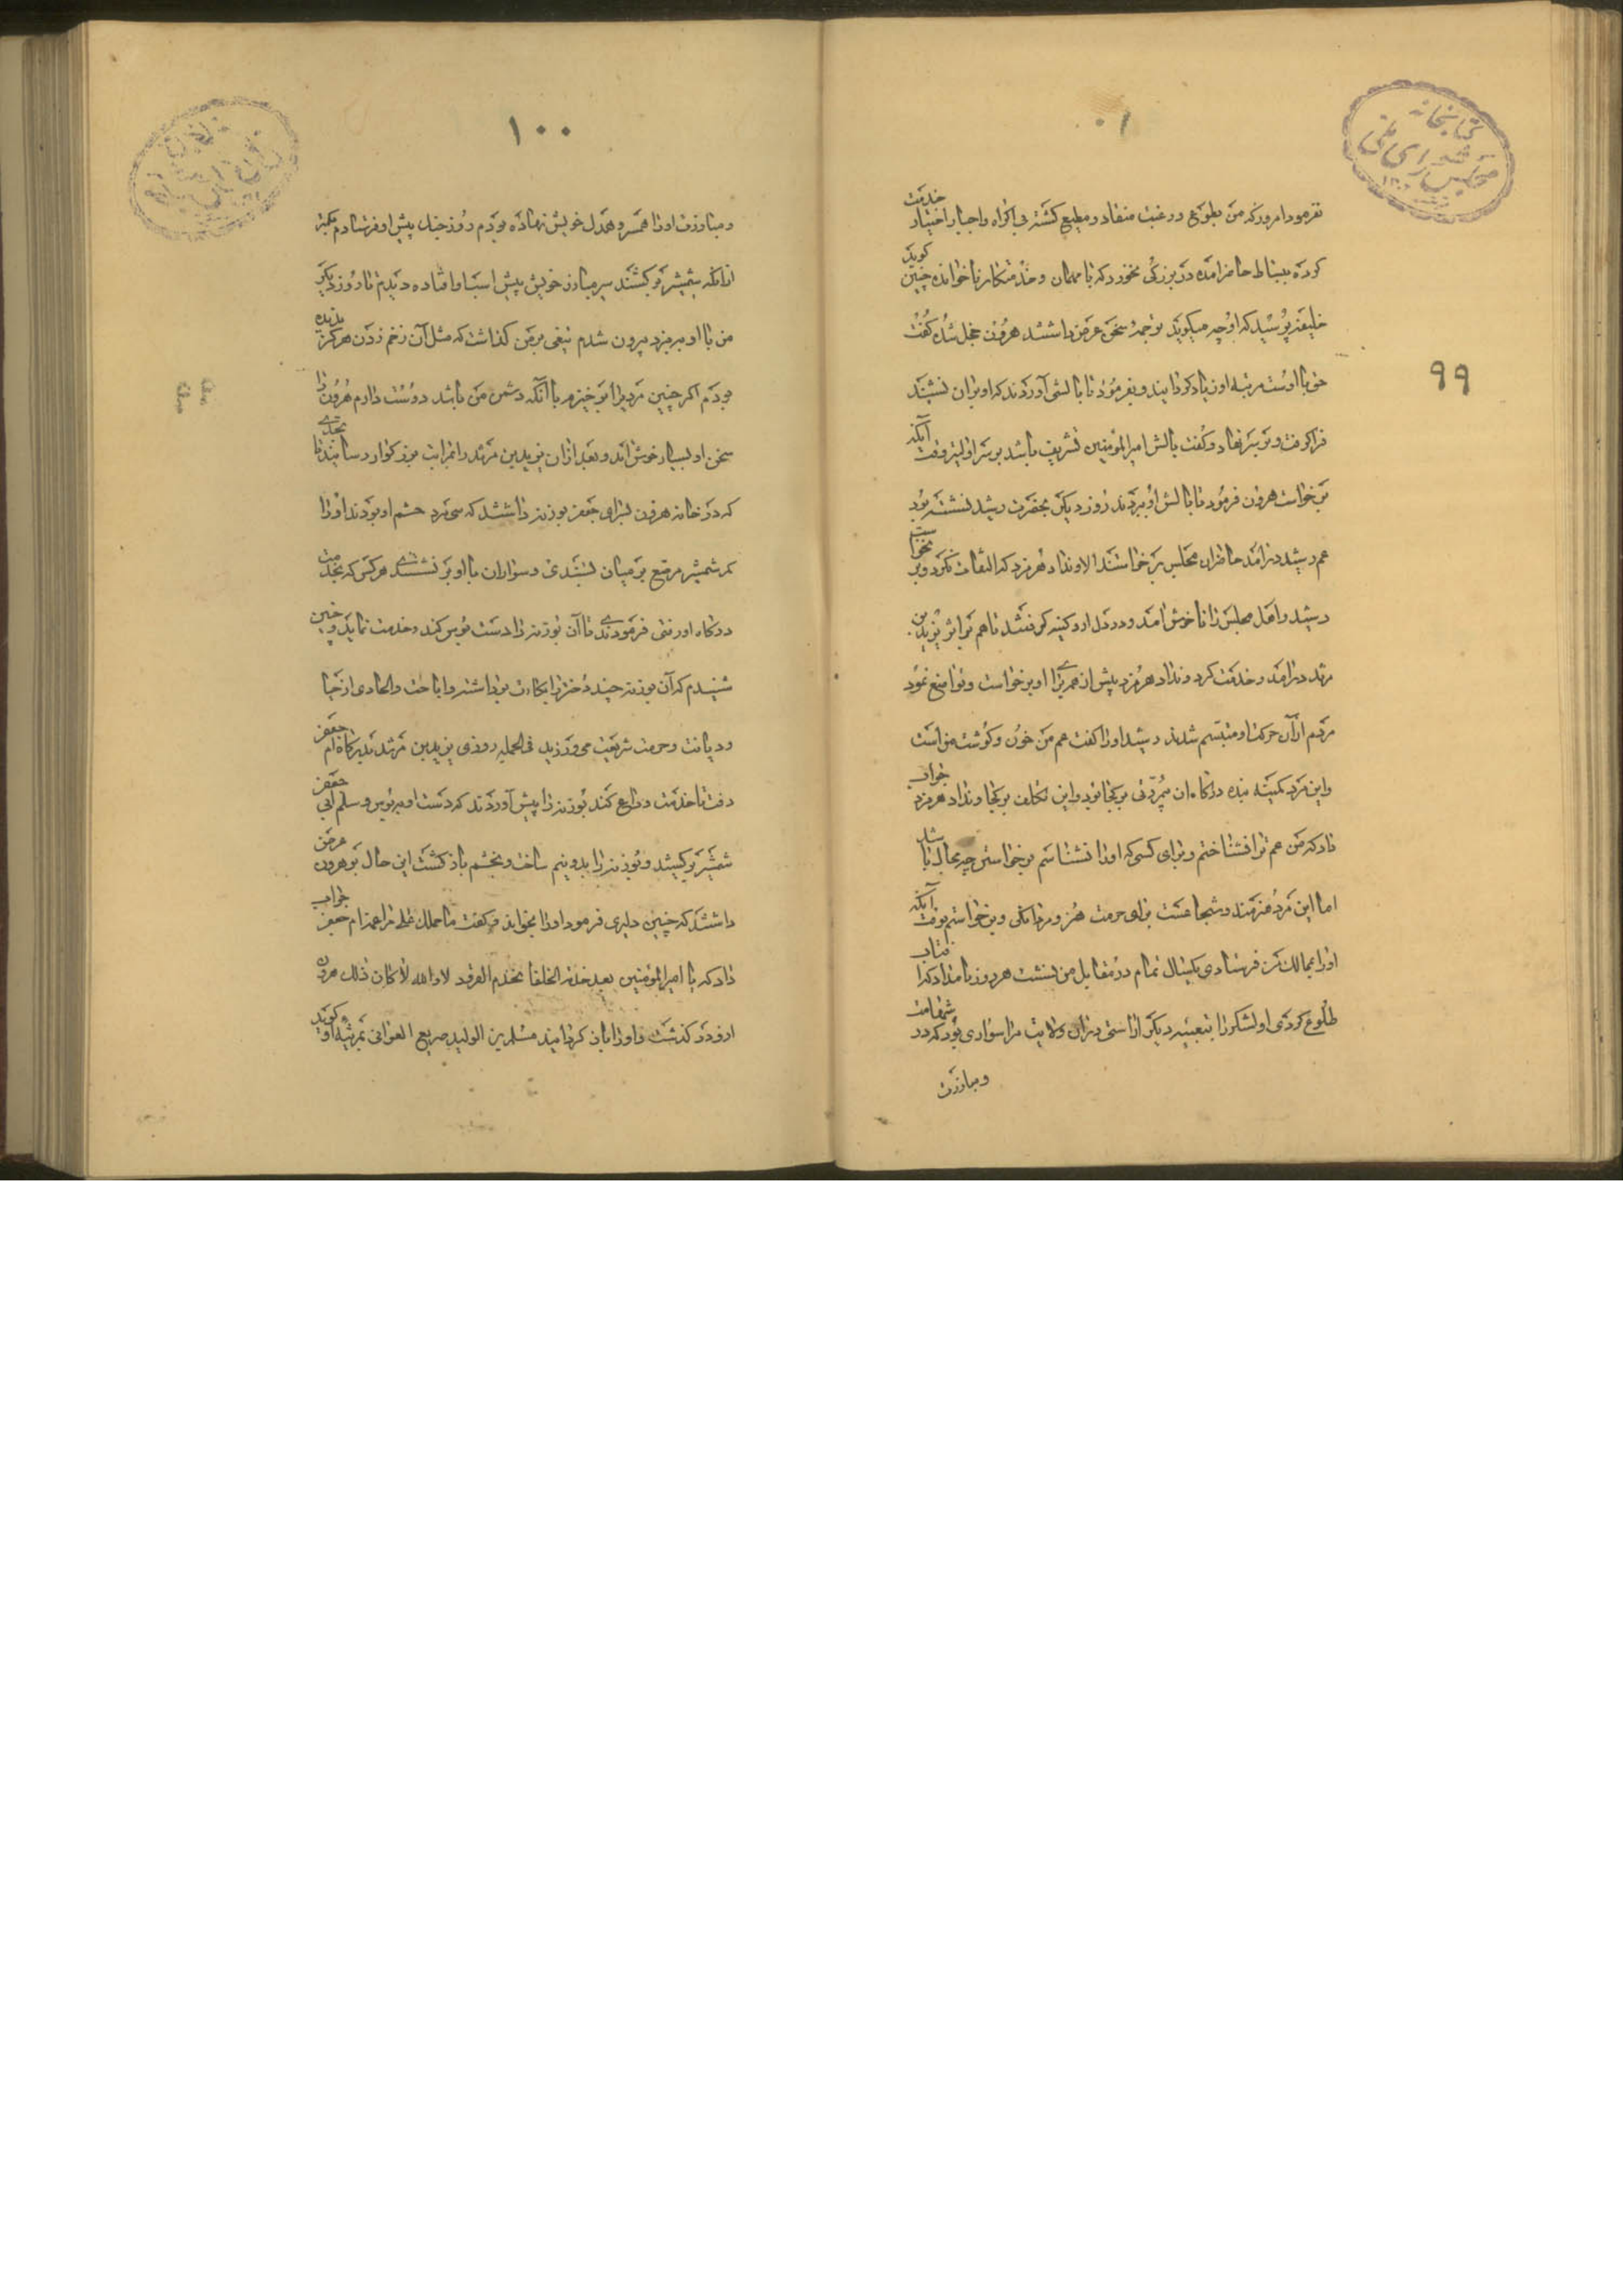 ۹۹
نفرمود امروز که من بطوع و رغبت منقاد و مطیع گشته بی اکراه و اجبار اختیار خدمت
کرده ببساط حاضر آمده در بزرگی نخورد که با مهمان و خدمتکار ناخوانده چنین گویند
خلیفه پرسید که او چه میگوید ترجمه سخن عرض داشتند هرون خجل شد گفت
حق با اوست مرتبه او زیاد گردانید و بفرمود تا بالشی آوردند که او بران نشیند
فرا گرفت و بر سر نهاد و گفت بالش امیرالمؤمنین تشریف باشد بر سر اولیتر وقت آنکه
برخواست هرون فرمود تا بالش او ببردند روز دیگر بحضرت رشید نشسته بود
عم رشید درآمد حاضران مجلس برخواستند الا ونداد هرمزد که التفات نکرد و بر نخواست
رشید و اهل مجلس را ناخوش آمد و در دل ازو کینه گرفتند تا هم بر اثر یزید بن
مرثد درآمد و خدمت کرد ونداد هرمزد پیش از همه برای او برخواست و تواضع نمود
مردم از آن حرکت او متبسم شدند رشید او را گفت عم من خون و گوشت من است
و این مرد کمینه بنده درگاه ان سردی بر کجا بود و این تکلف بر کجا ونداد هرمزد جواب
داد که من عم ترا نشناختم و برای کسی که او را نشناسم برخواستن چه محال باشد
اما این مرد هنرمند و شجاعست برای حرمت هنر و مردانگی وی برخواستم بوقت آنکه
او را بممالک من فرستادی یکسال تمام در مقابل من نشست هر روز بامداد که آفتاب
طلوع کردی او لشکر را بتعبیه دیگر آراستی در آن ولایت مرا سواری بود که در شهامت
و مبارزت
۱۰۰
و مبارزت او را همسر و همدل خویش نهاده بودم روز جنگ پیش او فرستادم
از آنکه شمشیر برکشند سر مبارز خویش پیش اسب او افتاده دیدم تا روز دیگر
من با او بنبرد بیرون شدم تیغی بر من گذاشت که مثل آن زخم زدن هرگز ندیده
بودم اگر چنین مردیرا برخیزم با آنکه دشمن من باشد دوست دارم هرون را
سخن او بسیار خوش آمد و بعد از آن یزید بن مرثد را بمراتب بزرگوار رسانید تا بحدی
که در خانه هرون لسرای جعفر بوزنه داشتند که سی مرد حشم او بودند او را
کمر شمشیر مرصع بر میان بستندی و سواران با او بر نشستندی هر کس که بخدمت
درگاه او رفتی فرمودندی تا آن بوزنه را دست بوس کند و خدمت نماید و چنین
شنیدم که آن بوزنه چند دختر را بکارت برداشته و اباحت و الحاد ی از حیا
و دیانت و حرمت شریعت می ورزید فی الجمله روزی یزید بن مرثد بدرگاه ام جعفر
رفت تا خدمت وداع کند بوزنه را پیش آوردند که دست او ببوس و سلم ابی جعفر
شمشیر برکشید و بوزنه را بدو نیم ساخت و بخشم باز گشت این حال بر هرون عرض
داشتند که چنین دلیری فرمود او را بخواند و گفت ما حملک علی مراغمة ام جعفر جواب
داد که یا امیرالمؤمنین بعد خدمة الخلفا نخدم القرود لا و الله لا کان ذلک هرون
ازو در گذشت و او را باز گردانید مسلم بن الولید صریع الغوانی بمرثیه او گوید